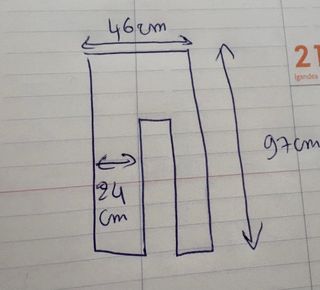 46cm
21
Igandea
97cm
24
cm